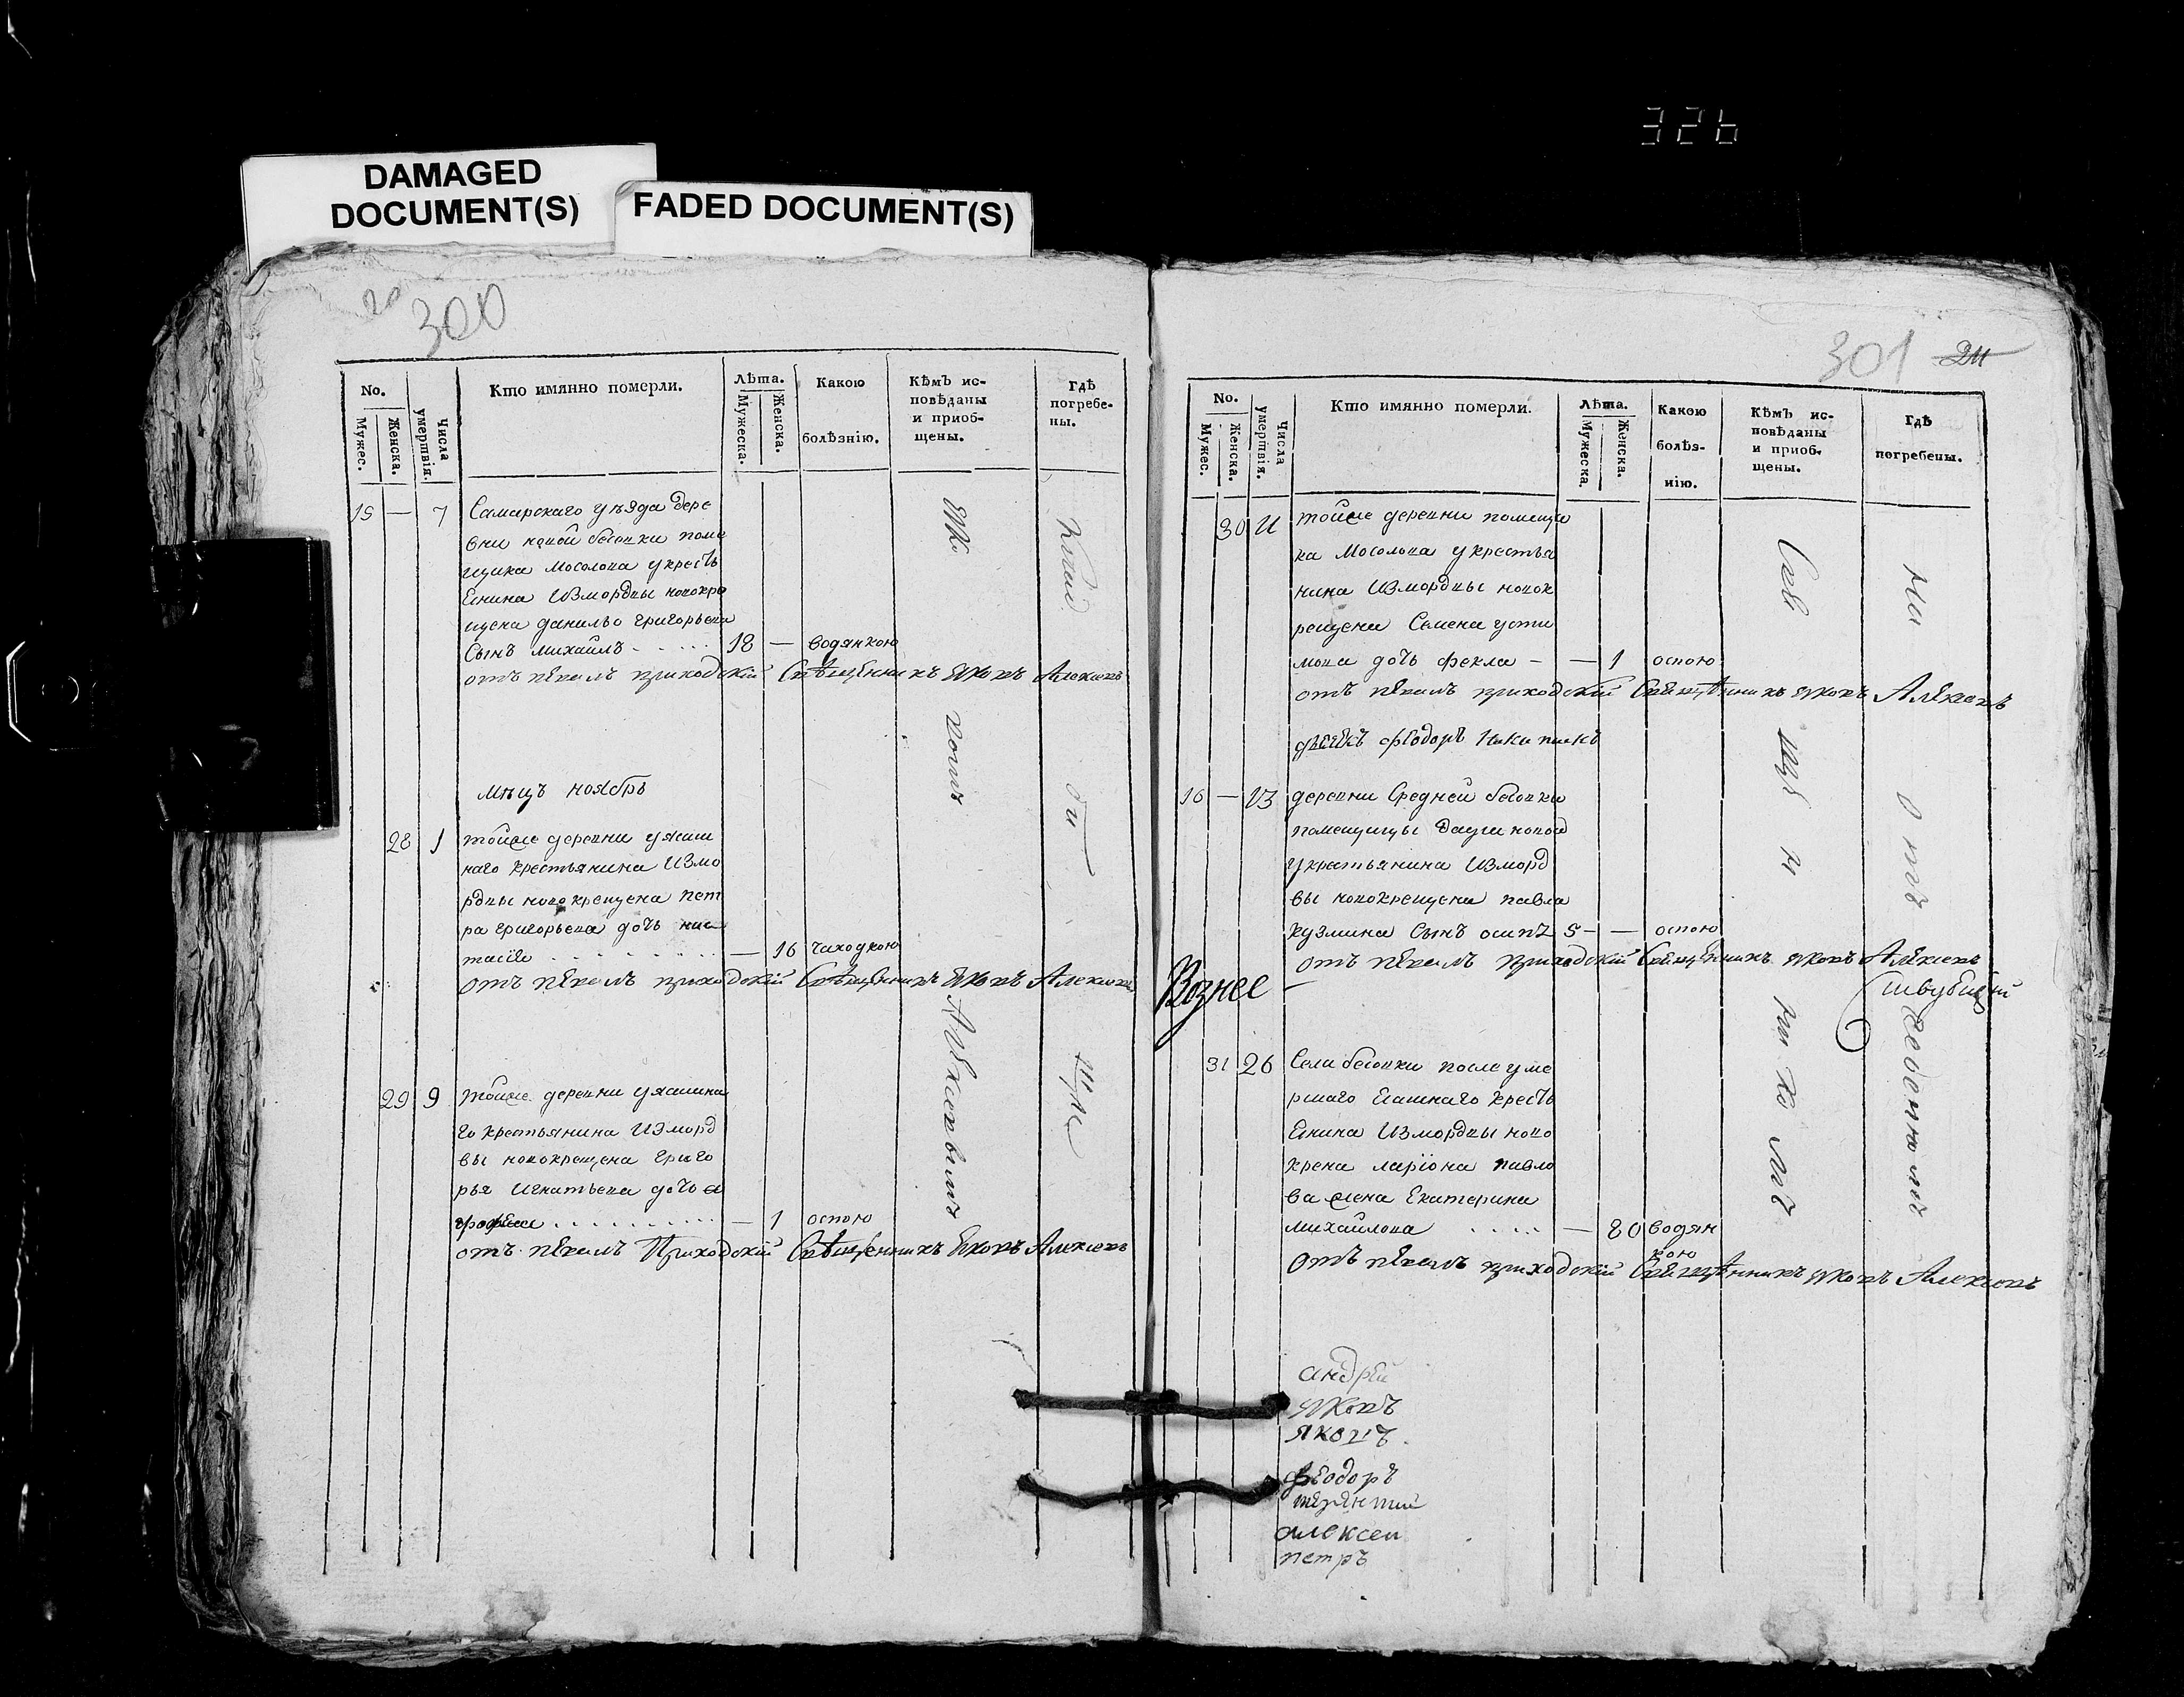 326
DAMAGED
DOCUMENT(S)
FADED DOCUMENT(S)
20
300
No.
Мужес.
Женска.
Числа умертвія.
Кто имянно померли.
Лѣта.
Мужеска.
Женска.
Какою
болѣзнію.
Кѣмъ ис-
повѣданы
и приоб-
щены.
Гдѣ
погребе-
ны.
15 — 7 Самарскаго уѣзда дере
вни новой бесовки поме
щика Мосолова у кресть
енина Измордвы новокре
щена данилы григорьева
Сынъ михаилъ - - - - 18 — водянкою
отъ пѣвалъ приходскій Свѣщенникъ Яковъ Алексѣевъ
Мѣцъ ноябрь
28 1 тойже деревни уяшш
наго крестьянина Измо
рдвы новокрещена пет
ра григорьева дочь нас
тасiя — 16 чахоткою
отъ пѣвалъ приходскій Свѣщенникъ Яковъ Алексѣевъ
29 9 тойже деревни уяшшна
го крестьянина Изморд
вы новокрещена григо
рья игнатьева дочь а
грофена — 1 оспою
отъ пѣвалъ Приходскій Свѣщенникъ Яковъ Алексѣевъ
Яко
вомъ
Алексѣевымъ
301 211
No.
Мужес.
Женска.
Числа умертвія.
Кто имянно померли.
Лѣта.
Мужеска.
Женска.
Какою
болѣз-
нію.
Кѣмъ ис-
повѣданы
и приоб-
щены.
Гдѣ
погребены.
30 11 тойже деревни помещи
ка Мосолова у крестья
нина Измордвы новок
рещена Семена усти
мова дочь фекла - — 1 оспою
отъ пѣвалъ приходскій Свещѣнникъ яковъ Алексѣевъ
дьячекъ фѣодоръ
16 — 13 деревни Средней бесовки
помещицы Дашковой
у крестьянина Изморд
вы новокрещена павла
кузмина Сынъ осипъ 5 - — оспою
отъ пѣвалъ приходскій Свещѣнникъ яковъ Алексѣевъ
Вознес -
31 26 Села бесовки после уме
ршаго Ясашнаго кресть
янина Измордвы ново
крена ларiона павло
ва жена Екатерина
михайлова - - - - — 80 водян
кою
Отъ пѣвалъ приходскій Свещѣнникъ яковъ Алексѣевъ
андрей
яковъ
яковъ
фѣодоръ
терентий
алексеи
петръ